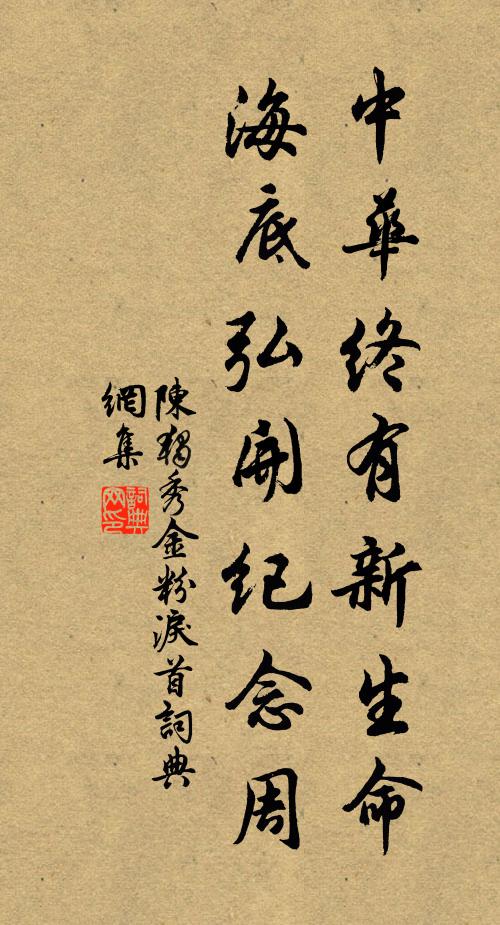 中華終有新生命
海底弘開紀念周
陳獨秀金粉淚首詞典
網集
詞典
网印